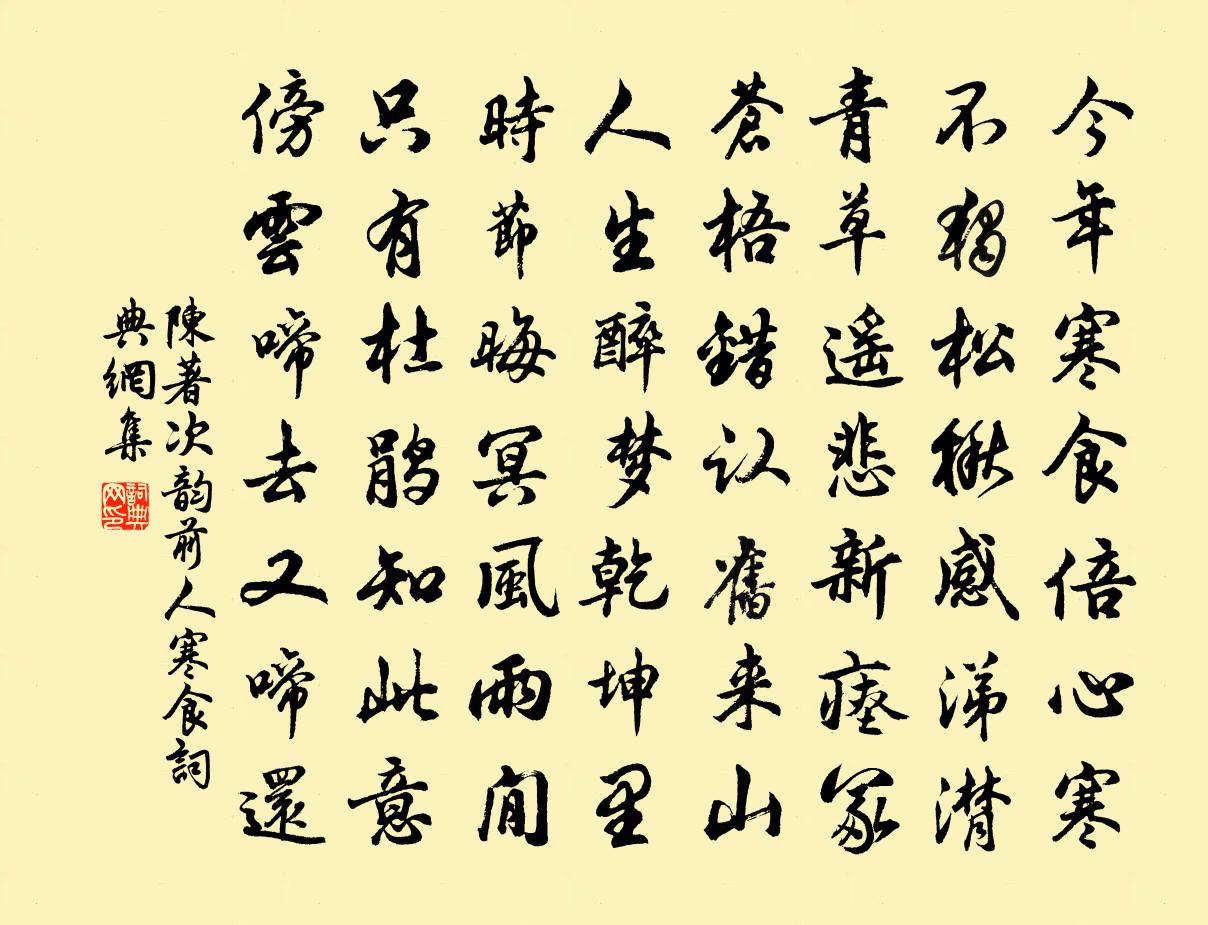 今年寒食倍心寒
不獨松楸感涕潸
青草遥悲新瘞冢
蒼梧錯认舊来山
人生醉梦乾坤里
時節晦冥風雨間
只有杜鹃知此意
傍雲啼去又啼還
陳著次韵前人寒食詞
典網集
詞典
网印